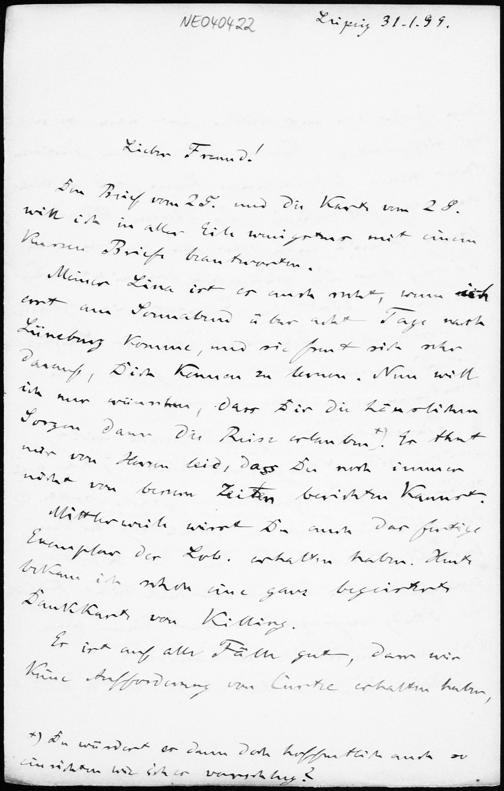 NE040422
Leipzig 31.1.99.
Lieber Freund!
Den Brief vom 25. und die Karte vom 28.
will ich in aller Eile wenigstens mit einem
kurzen Briefe beantworten.
Meiner Lina ist es auch recht, wenn ich
erst am Sonnabend über acht Tage nach
Lüneburg komme, und sie freut sich sehr
darauf, Dich kennen zu lernen. Nun will
ich nur wünschen, dass Dir die häuslichen
Sorgen dann die Reise erlauben +). Es thut
mir von Herzen leid, dass Du noch immer
nicht von bessern Zeiten berichten kannst.
Mittlerweile wirst Du auch das fertige
Exemplar der Lob. erhalten haben. Heute
bekam ich schon eine ganz begeisterte
Dankkarte von Killing.
Es ist auf alle Fälle gut, dass wir
keine Aufforderung von Curtze erhalten haben,
+) Du würdest es dann doch hoffentlich auch so
einrichten wie ich es vorschlug?